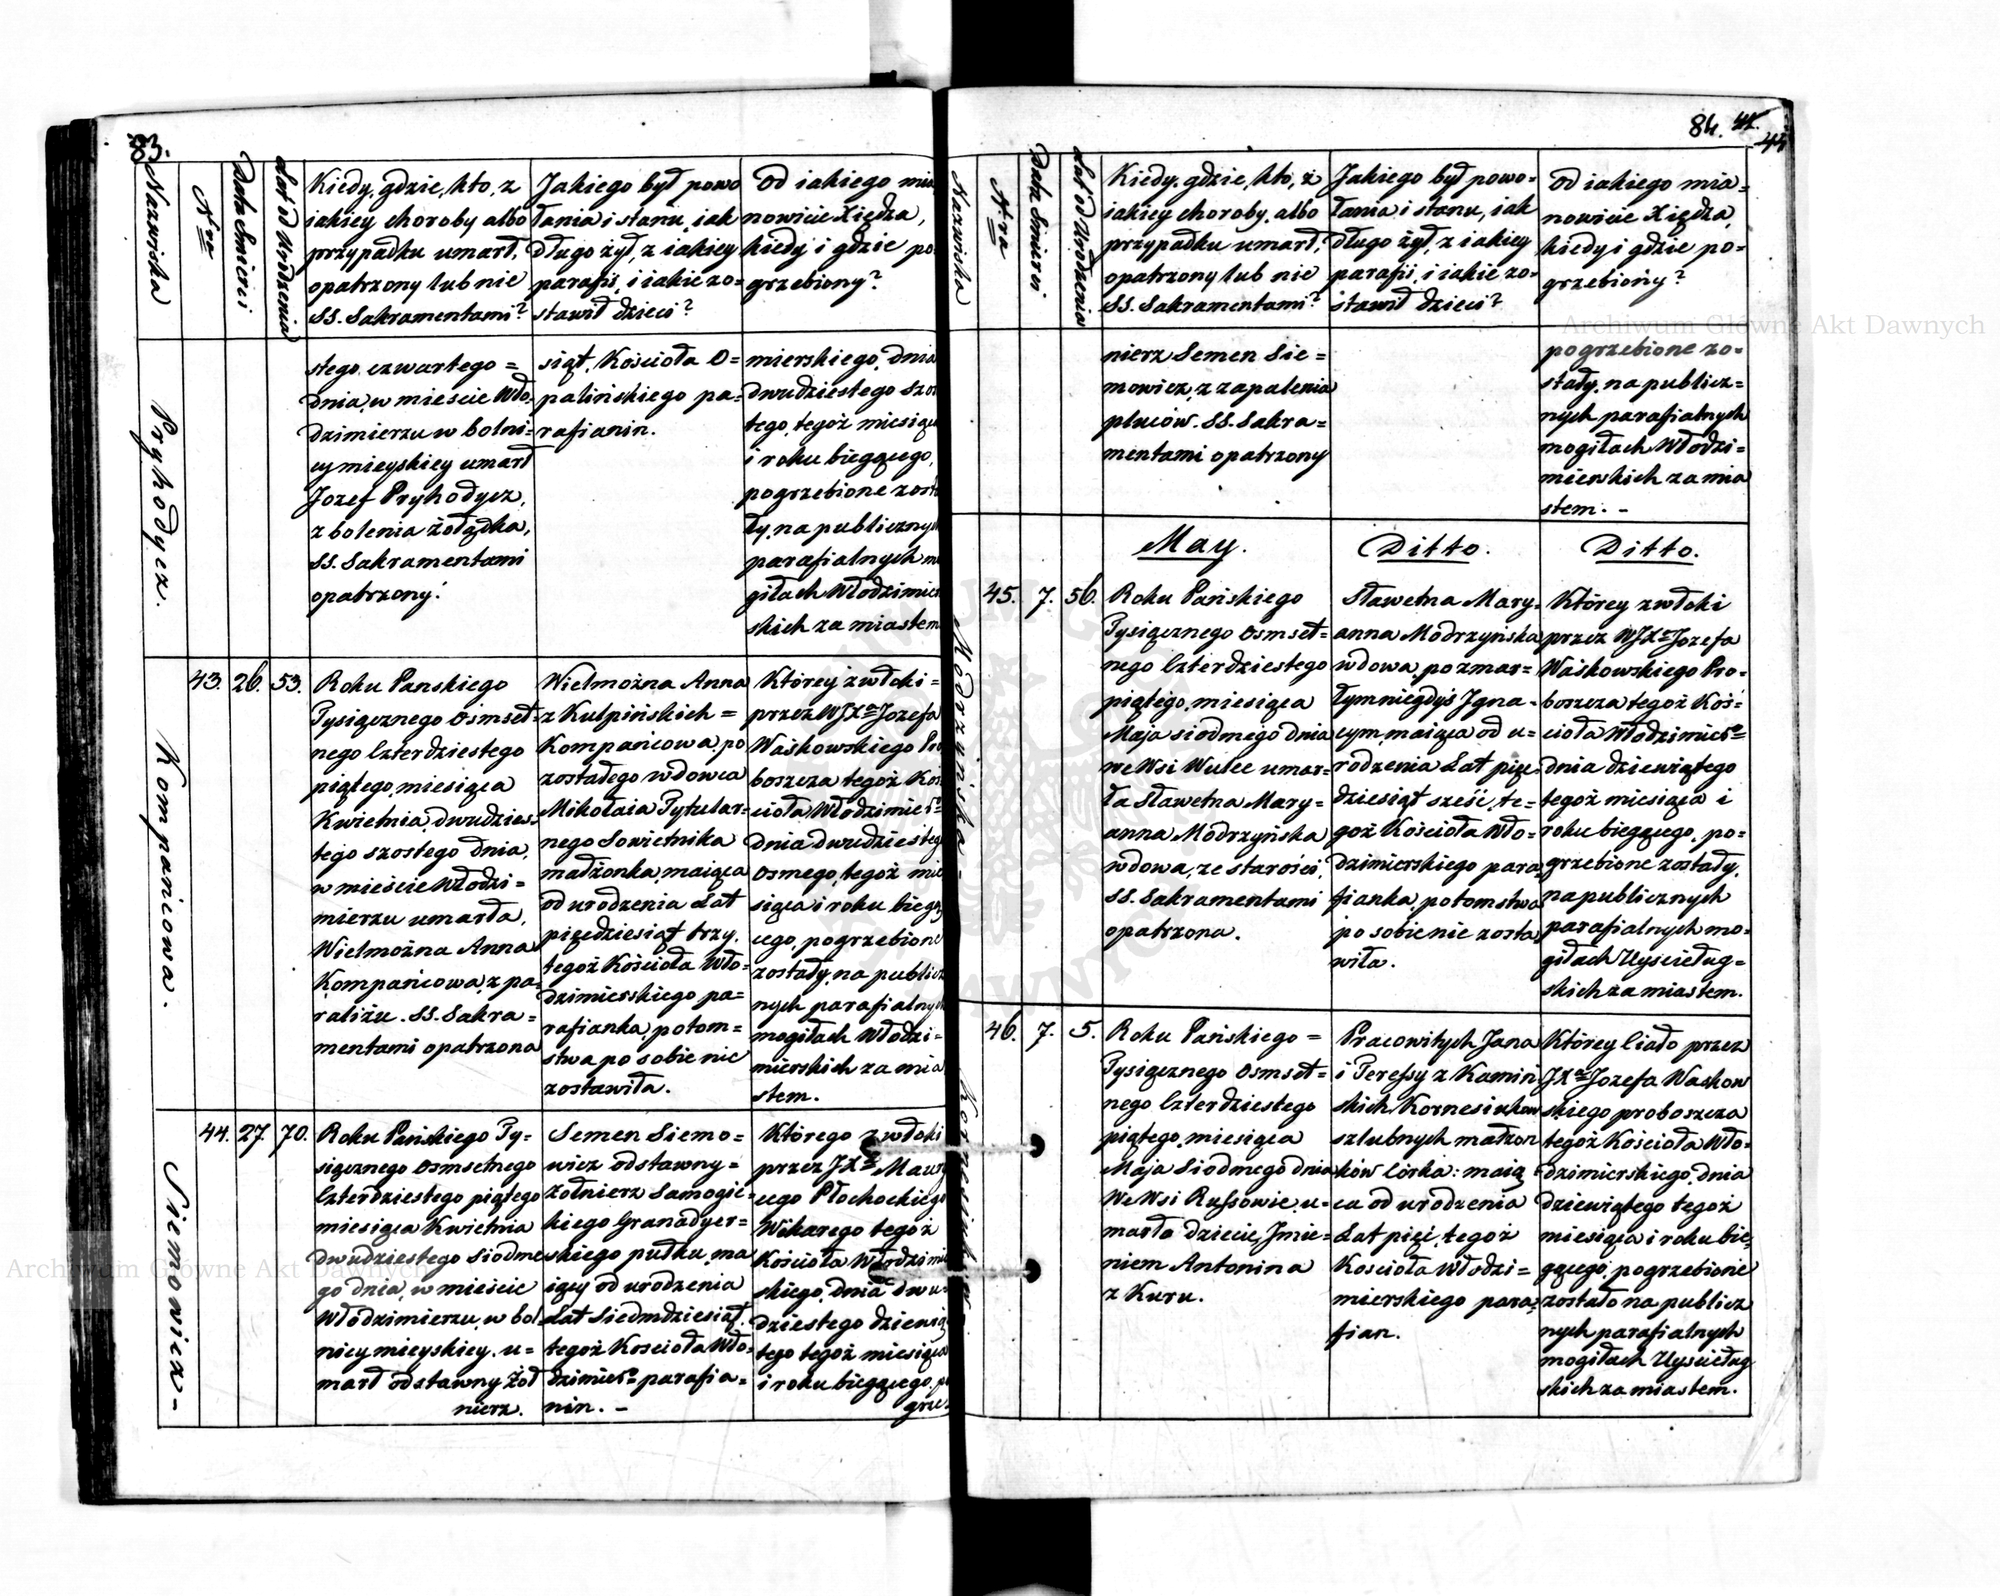 83.
Nazwiska
Nra
Data Śmierci
Lat od Urodzenia
Kiedy, gdzie, kto, z
iakiey choroby albo
przypadku umarł,
opatrzony lub nie
SS. Sakramentami?
Jakiego był powo
łania i stanu, iak
długo żył, z iakiey
parafii, i iakie zo=
stawił dzieci?
Od iakiego mia
nowicie Xiędza,
kiedy i gdzie po
grzebiony?
Pryhodycz.
stego czwartego =
dnia, w mieście Wło=
dzimierzu w bolni=
cy mieyskiey umarł
Jozef Pryhodycz,
z bolenia żołądka,
SS. Sakramentami
opatrzony.
siąt, Kościoła O=
palińskiego pa=
rafianin.
mierskiego, dnia
dwudziestego szos
tego, tegoż miesiąca
i roku bieżącego,
pogrzebione zosta
ły, na publicznych
parafialnych mo
giłach Włodzimier
skich za miastem
Kompanicowa.
43. 26. 53.
Roku Panskiego
Tysiącznego Ośmset=
nego Czterdziestego
piątego, miesiąca
Kwietnia, dwudzies=
tego szostego dnia,
w mieście Włodzi=
mierzu umarła,
Wielmożna Anna
Kompańcowa, z pa=
raliżu. SS. Sakra=
mentami opatrzona
Wielmożna Anna
z Kulpińskich =
Kompańcowa, po
zostałego wdowca
Mikołaia Tytular=
nego Sowietnika
małżonka, maiąca
od urodzenia Lat
pięćdziesiąt trzy,
tegoż Kościoła Wło=
dzimierskiego pa=
rafianka, potom=
stwa po sobie nie
zostawiła.
Którey zwłoki=
przez WJXa Jozefa
Waśkowskiego Pro
boszcza tegoż Koś
cioła Włodzimiergo=
dnia dwudziestego
osmego, tegoż mie
siąca i roku bieżą
cego, pogrzebione
zostały, na publicz
nych parafialnych
mogiłach Włodzi=
mierskich za mia
stem.
Siemowicz-
44. 27. 70.
Roku Pańskiego Ty=
siącznego Osmsetnego
Czterdziestego piątego
miesiąca Kwietnia
dwudziestego siodme
go dnia, w mieście
Włodzimierzu, w bol
nicy mieyskiey. u=
marł odstawny Żoł
nierz.
Semen Siemo=
wicz odstawny=
żołnierz Samogic=
kiego Granadyer=
skiego pułku, ma
iący od urodzenia
Lat Siedmdziesiąt.
tegoż Kościoła Wło=
dzimiergo parafia=
nin. -
Którego zwłoki
przez JXa Maury
cego Płochockiego
Wikarego tegoż
Kościoła Włodzimier
skiego, dnia dwu=
dziestego dziewią
tego tegoż miesiąca
i roku bieżącego, po
grze=
84.
44
Nazwiska
Nra
Data Śmierci
Lat od Urodzenia
Kiedy, gdzie, kto, z
iakiey choroby, albo
przypadku umarł,
opatrzony lub nie
SS. Sakramentami?
Jakiego był powo=
łania i stanu, iak
długo żył, z iakiey
parafii, i iakie zo=
stawił dzieci?
Od iakiego mia=
nowicie Xiędza,
kiedy i gdzie po=
grzebiony?
nierz Semen Sie=
mowicz, z zapalenia
płuców. SS. Sakra=
mentami opatrzony
pogrzebione zo=
stały, na publicz=
nych parafialnych
mogiłach Włodzi=
mierskich za mia
stem. -
May.
Ditto.
Ditto.
Modrzyńska-
45. 7. 56.
Roku Pańskiego
Tysiącznego Osmset=
nego Czterdziestego
piątego, miesiąca
Maja siodmego dnia
we Wsi Wulce umar=
ła Sławetna Mary=
anna Modrzyńska
wdowa, ze starości,
SS. Sakramentami
opatrzona.
Sławetna Mary=
anna Modrzyńska
wdowa, po zmar=
łym niegdyś Igna=
cym, maiąca od u=
rodzenia Lat pięć
dziesiąt sześć, te=
goż Kościoła Wło=
dzimierskiego para
fianka, potomstwa
po sobie nie zosta
wiła.
Którey zwłoki
przez WJXa Jozefa
Waśkowskiego Pro=
boszcza tegoż Koś=
cioła Włodzimiergo=
dnia dziewiątego
tegoż miesiąca i
roku bieżącego, po=
grzebione zostały,
na publicznych
parafialnych mo=
giłach Uyściług=
skich za miastem.
46. 7. 5.
Roku Pańskiego =
Tysiącznego Osmset=
nego Czterdziestego
piątego, miesiąca
Maja Siodmego dnia
We Wsi Russowie, u=
marło dziecie, Imie=
niem Antonina
z Kuru.
Pracowitych Jana
i Teressy z Kamiń
skich
szlubnych małżon
ków Córka: maią
ca od urodzenia
Lat pięć, tegoż
Koscioła Włodzi=
mierskiego para=
fian.
Którey Ciało przez
JXa Jozefa Waskow
skiego proboszcza
tegoż Kościoła Wło=
dzimierskiego, dnia
dziewiątego tegoż
miesiąca i roku bie
żącego, pogrzebione
zostało na publicz
nych parafialnych
mogiłach Uyściług
skich za miastem.
Archiwum Główne Akt Dawnych
Archiwum Główne Akt Dawnych